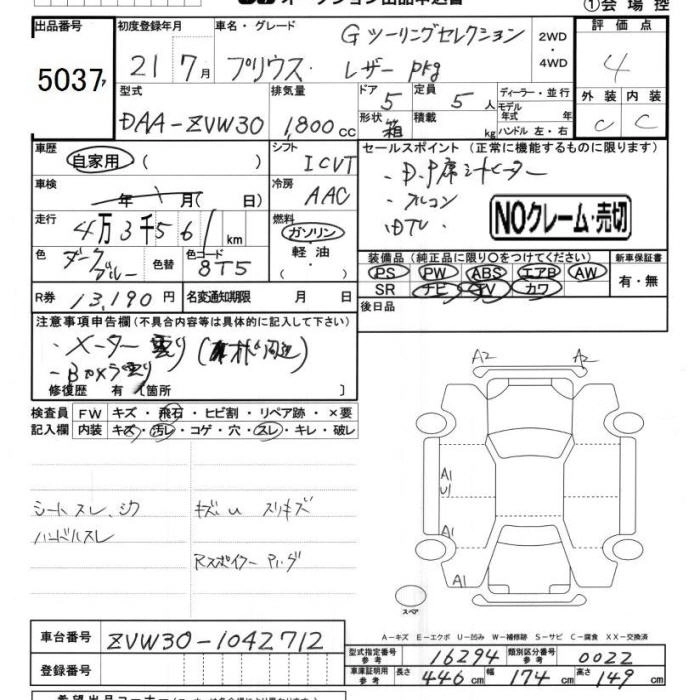 オークション出品申込書
①会場控
出品番号 初度登録年月 車名・グレード 2WD・4WD 評価点
5037 21 7月 プリウス Gツーリングセレクション レザー Pkg 4
型式 排気量 ドア 5 定員 5人 ディーラー・並行 外装 内装
DAA-ZVW30 1,800cc 形状 箱 積載 kg モデル年式 年 ハンドル 左・右 C C
車歴 自家用 ( ) シフト ICVT セールスポイント(正常に機能するものに限ります)
車検 年 月( 日) 冷房 AAC
・アルコン
走行 4万3千561km 燃料 ガソリン・軽油・( ) NOクレーム・売切
色 ダークブルー 色替 色コード 8T5 装備品(純正品に限り○をつけてください) 新車保証書
PS PW ABS エアB AW 有・無
SR ナビ TV カワ
R券 13,190円 名変通知期限 月 日 後日品
注意事項申告欄(不具合内容等は具体的に記入して下さい)
・メーター曇り
・Bカメラ曇り
修復歴 有〔箇所 〕
検査員記入欄 FW キズ・飛石・ヒビ割・リペア跡・×要
内装 キズ・汚レ・コゲ・穴・スレ・キレ・破レ
A2 A2
A1
U1
A1
A1
シートスレ、シワ キズU スリキズ
ハンドルスレ
スペア
A-キズ E-エクボ U-凹み W-補修跡 S-サビ C-腐食 XX-交換済
車台番号 ZVW30-1042712
型式指定番号 参考 16294 類別区分番号 参考 0022
登録番号 車庫証明用 参考 長さ 446cm 幅 174cm 高さ 149cm